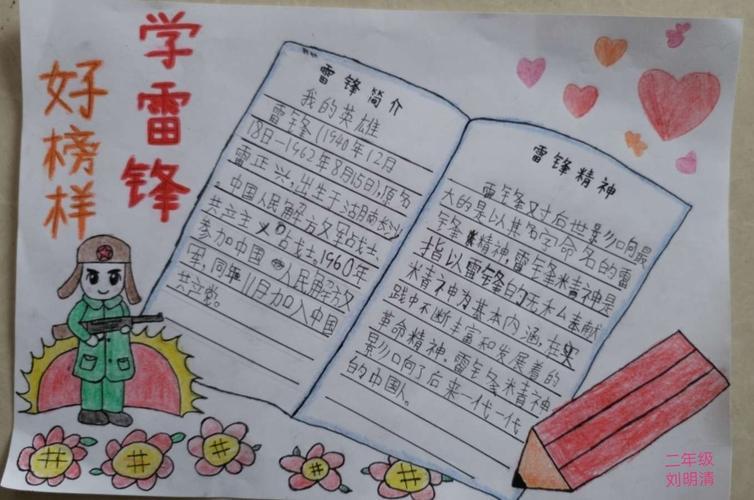 学雷锋
好榜样
雷锋简介
我的英雄
雷锋(1940年12月
18日-1962年8月15日),原名
雷正兴,出生于湖南长沙
。中国人民解放军战士、
共产主义战士。1960年
参加中国人民解放
军,同年11月加入中国
共产党。
雷锋精神
雷锋对后世影响最
大的是以其名字命名的雷
锋精神,雷锋精神是
指以雷锋的无私奉献
精神为基本内涵,在实
践中不断丰富和发展着的
革命精神,雷锋精神
影响了后来一代一代
的中国人。
二年级
刘明清